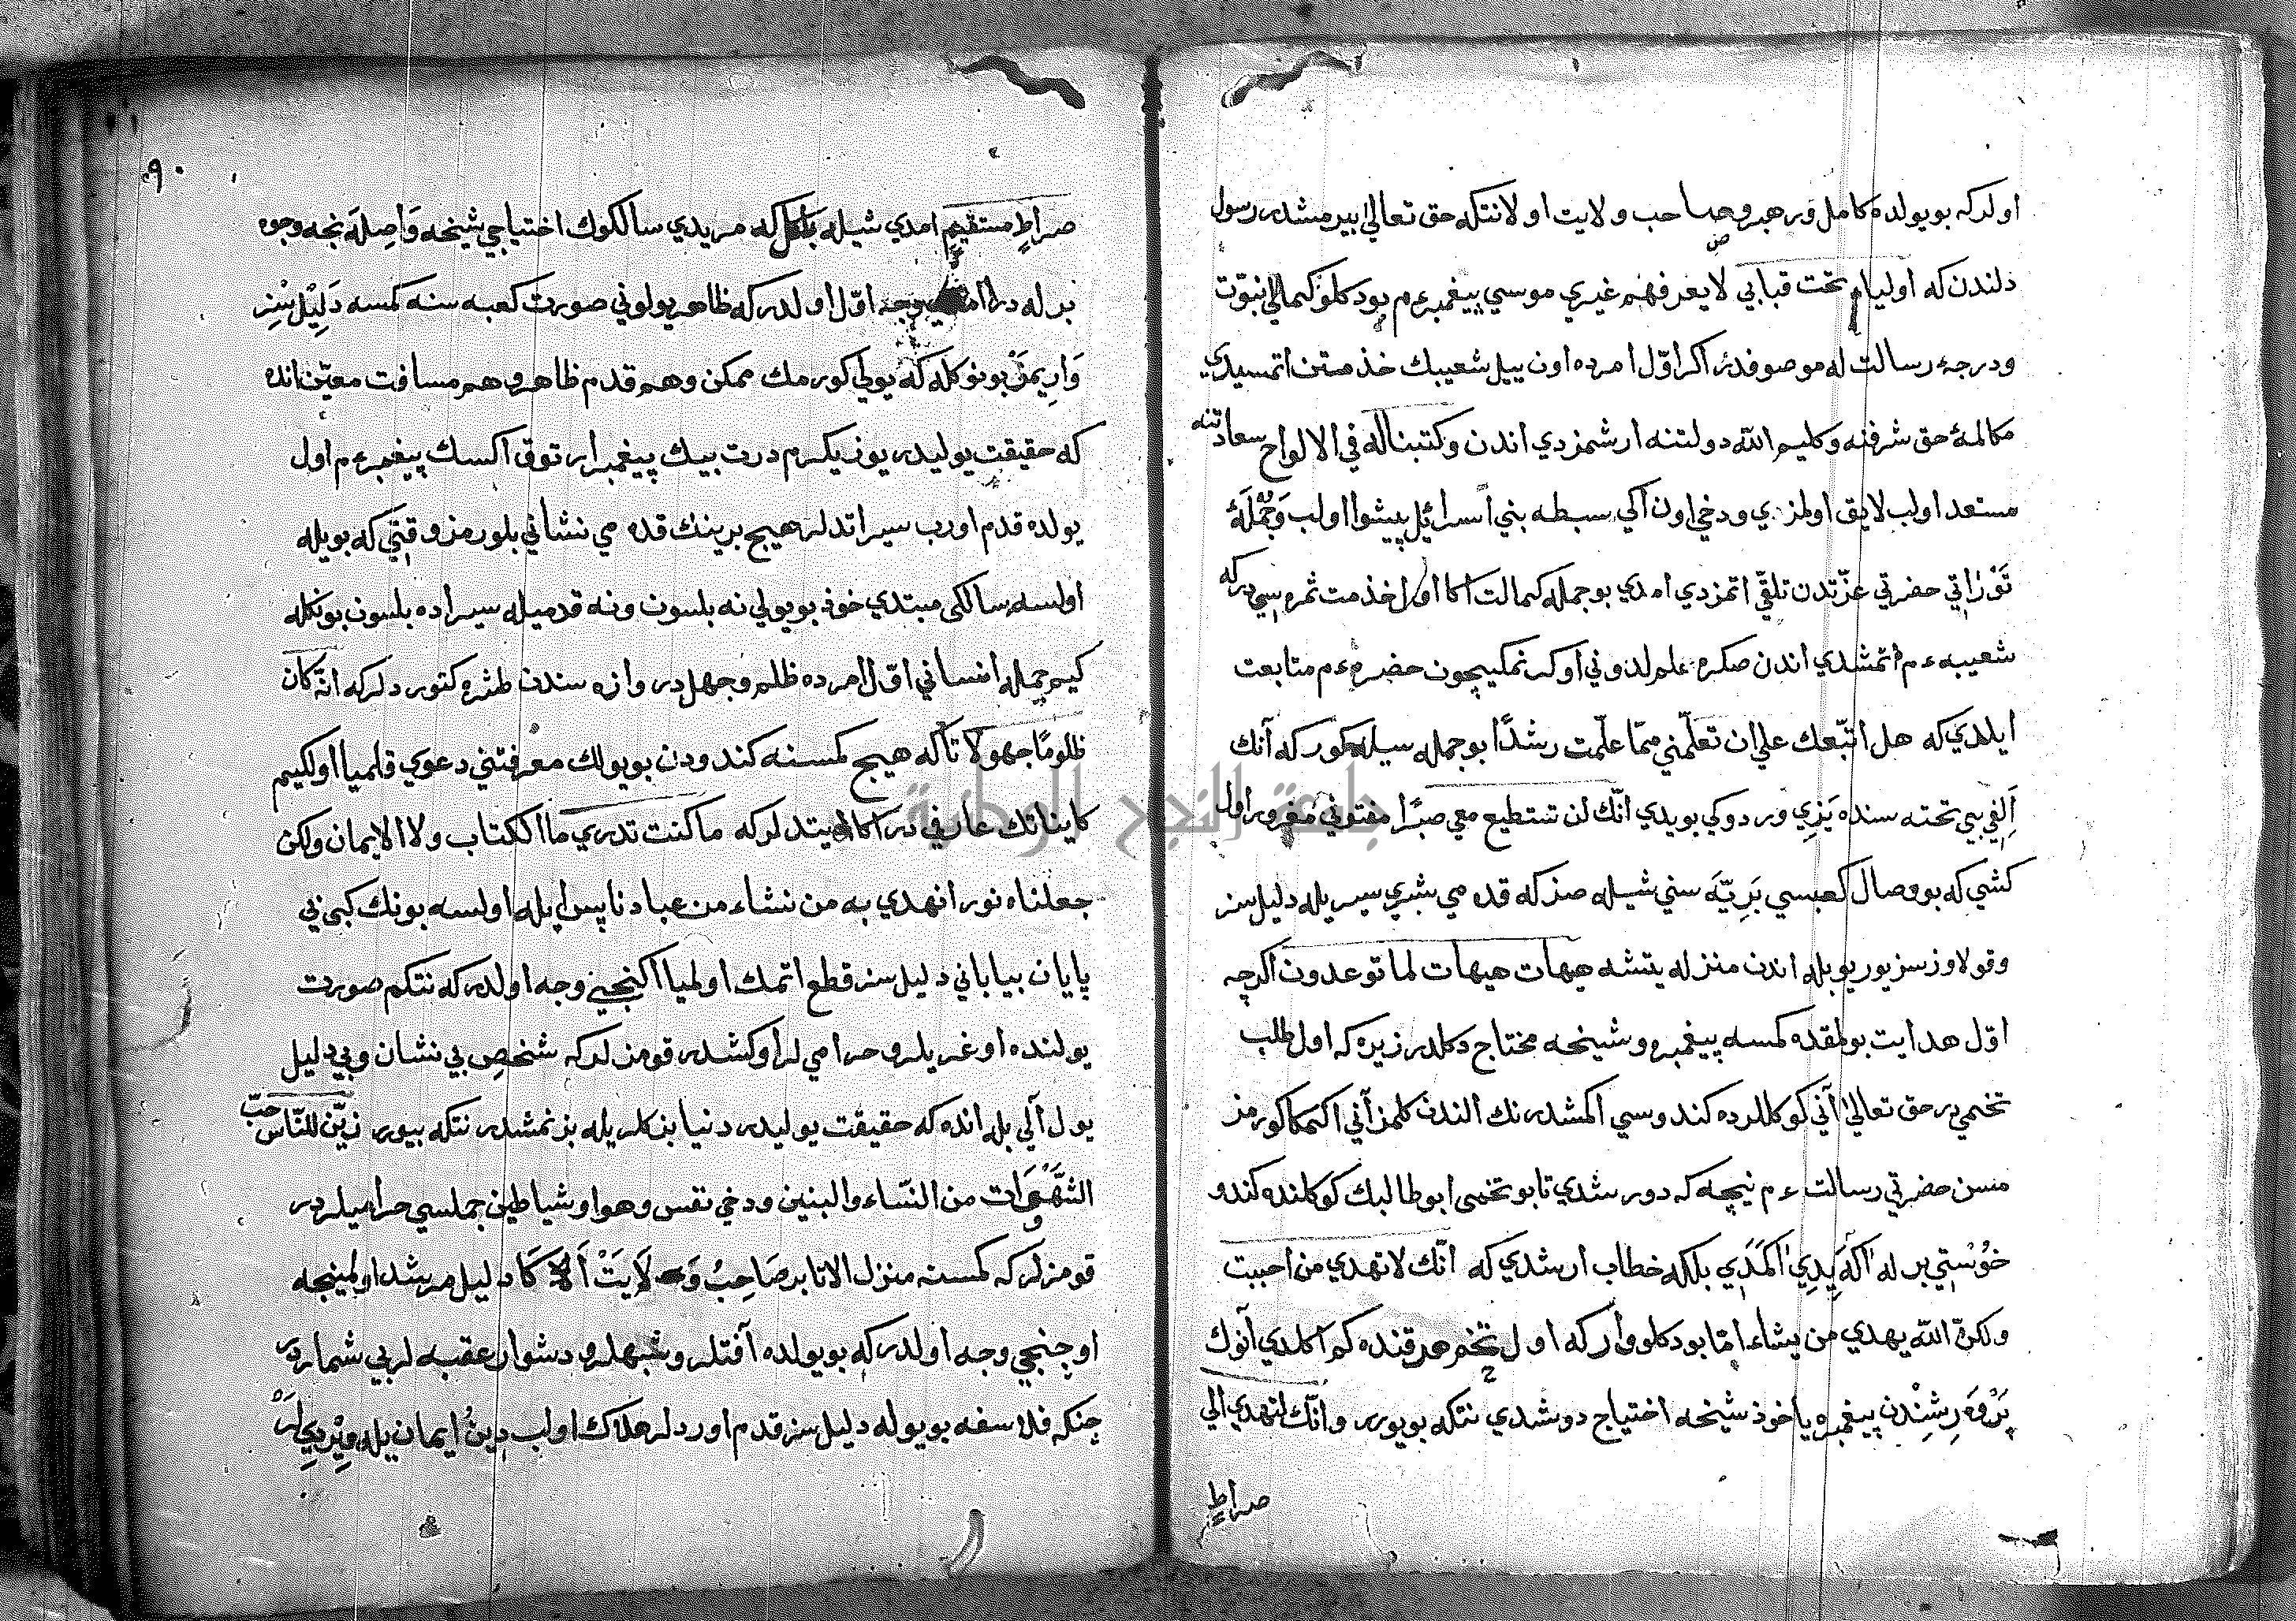 اولدر كه بو يولده كامل و رهبر و صاحب ولايت اولا نتكه حق تعالى بير مشدر رسول
دلندن كه اوليائي تحت قبابي لا يعرفهم غيري موسي پيغمبر ءم بودكلو كمالي نبوّت
ودرجهء رسالت له موصوفدر اكر اوّل امرده اون ييل شعيبك خذمتن اتمسيدي
مكالمهٔ حق شرفنه و كليم الله دولتنه ارشمزدي اندن وكتبنا له في الالواح سعادتنه
مستعد اولب لايق اولمزدي ودخي اون اكي سبطه بني اسرائيل پيشوا اولب وَجُمْلَهٔ
تَوْرٰاتي حضرتي عزّتدن تلقّي اتمزدي امدي بو جمله كمالت اكا اول خذمت ثمره سي در كه
شعيبه ءم اتمشدي اندن صكره علم لدوني اوكرنمكيچون حضره ءم متابعت
ايلدي كه هل اتّبعك علي ان تعلّمني ممّا علّمت رشدًا بو جمله سيله كور كه آنك
اَلِفِ بِي تخته سنده يَزِي وردوكي بويدي انّك لن تستطيع معي صبرًا مفتوني مغرور اول
كشي كه بو وصال كعبسي بَرِيّهَ سني شيله صنر كه قدمي بشري سيريله دليل سز
وقولاوز سز يوريو بله اندن منزله يتشه هيهات هيهات لما توعدون اكرچه
اوّل هدايت بولمقده كمسه پيغمبره و شيخه محتاج دكلدر زيره كه اول طلب
تخمي در حق تعالى آني كوكللرده كندوسي اكمشدر نك الندن كلمز آني اكمكا كورمز
مسن حضرتي رسالت ءم نيچه كه دور شدي تا بو تخمى ابو طالبك كوكلنده كندو
خُوْسْتِي بر له اكهَ يِدِي اكمَدي بلكه خطاب ارشدي كه انّك لا تهدي من احببت
ولكنّ الله يهدي من يشاء امّا بودكلو وار كه اول تخم هر قنده كم اكلدي آنوك
پَرْوَرِشِنْدن پيغمبره يا خوذ شيخه احتياج دوشدي نتكه بويورر وانّك لتهدي الي
صراطٍ
٩٠
صراطٍ مستقيمٍ امدي شيله بلكل كه مريدي سالكوك احتياجي شيخه وَاصِلَه نجه وجوه
بر له در وجه اوّل اولدر كه ظاهر يولوني صورت كعبه سنه كمسه دَلِيْل سْز
وَارِيمَزْ بونوكله كه يولي كورمك ممكن وهم قدم ظاهر وهم مسافت معيّن انده
كه حقيقت يوليدر يوز يكرم درت بيك پيغمبر ارتوق اكسك پيغمبر ءم اول
يولده قدم اورب سيرا تدلر هيج برينك قدمي نشاني بلورمز وقتَي كه بويله
اولسه سالكى مبتدي خوذ بو يولي نه بلسون ونه قدميله سيراده بلسون بونكله
كيم جمله انساني اوّل امرده ظلم وجهل در وازه سندن طشره كتوردلر كه انّه كان
ظلومًا جهولا تا كه هيج كمسنه كندودن بو يولك معرفتني دعوي قلميا اولكيم
كايناتك عارفي در اكا ايتدلر كه ما كنت تدري ما الكتاب ولا الايمان ولكن
جعلناه نورا نهدي به من نشاء من عبادنا پس ايله اولسه بونك كبى بي
پايان بياباني دليل سز قطع اتمك اولميا اكنجي وجه اولدر كه نتكم صورت
يولنده اوغريلر و حرامي لر اوكشدر قومزلر كه شخص بي نشان و بي دليل
يول آلي بله انده كه حقيقت يوليدر دنيا بزكلريله بزنمشدر نتكه بيور زيّن للنّاس حبّ
الشّهوات من النّساء والبنين ودخي نفس وهوا وشياطين جملسي حراميلردر
قومزلر كه كمسنه منزل الاتا بر صَاحِبُ وَلَايَتْ دليل مرشد اولمينجه
اوچنجي وجه اولدر كه بو يولده آفتلر و شبهلر و دشوار عقبه لر بي شماردر
چنكه فلاسفه بو يوله دليل سز قدم اوردلر هلاك اولب دين ايمان يله ويْرْدِيلَرْ